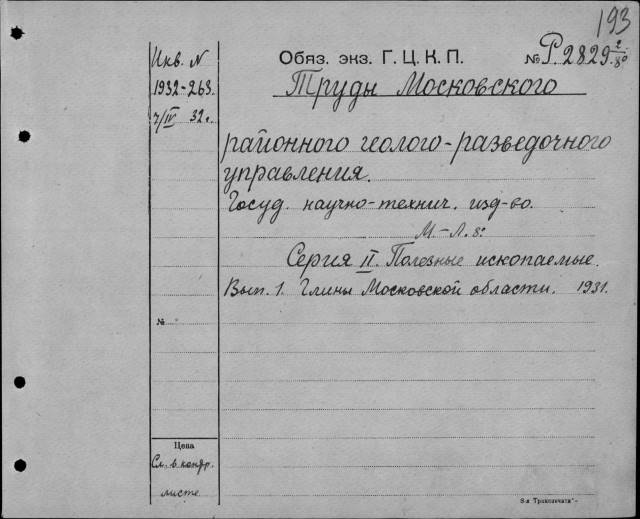 193
Инв. N
1932-263.
4/IV 32 г.
Обяз. экз. Г. Ц. К. П. № Р.2829 2/80
Труды Московского
районного геолого-разведочного
управления.
Госуд. научно-технич. изд-во.
М.-Л. 8°
Серия II. Полезные ископаемые.
Вып. 1. Глины Московской области. 1931.
№
Цена
См. в контр.
листе
8-я Трансп